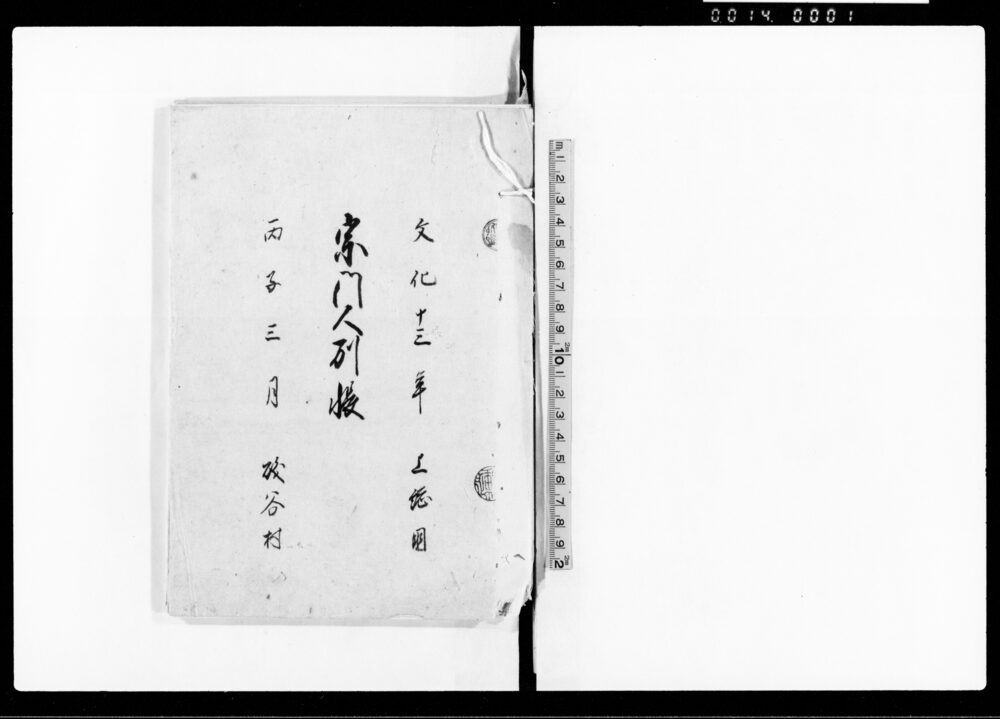 0.014. 0001
文化十三年 上総国
宗門人別帳
丙子三月 磯谷村
m 1 2 3 4 5 6 7 8 9 10 1 2 3 4 5 6 7 8 9 2